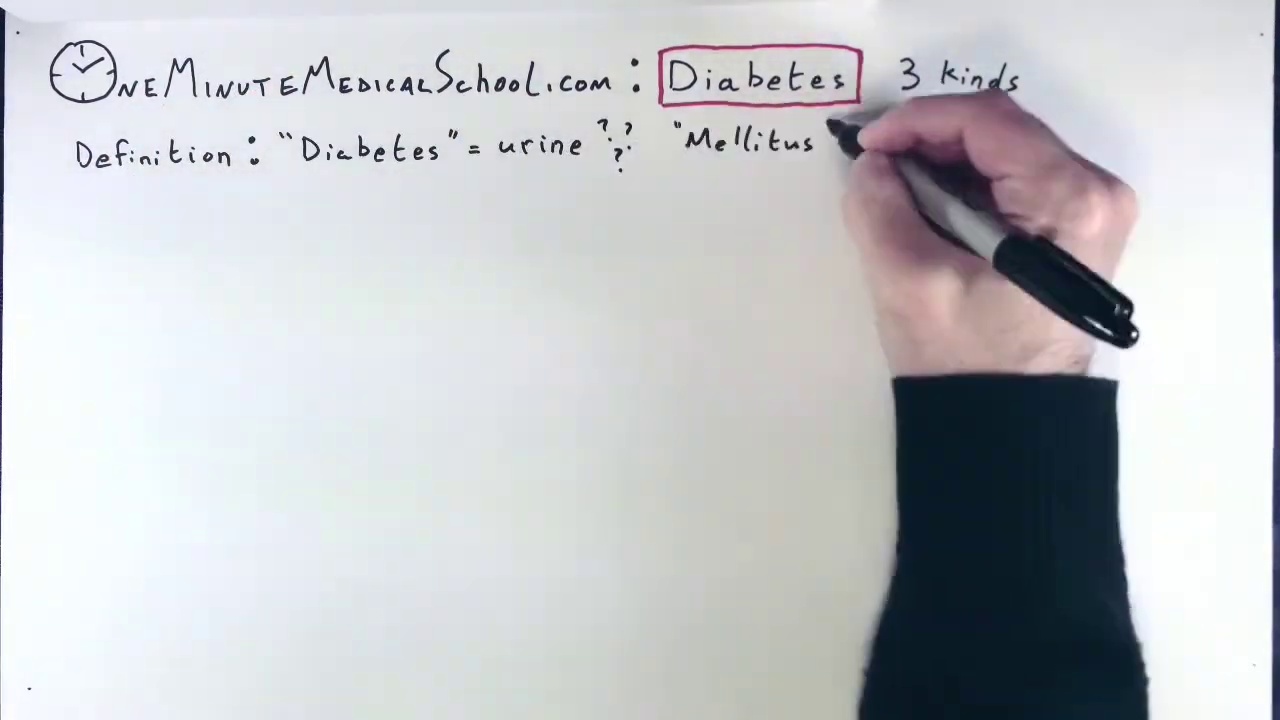 OneMinuteMedicalSchool.com : Diabetes 3 kinds
Definition : "Diabetes" = urine ??? "Mellitus